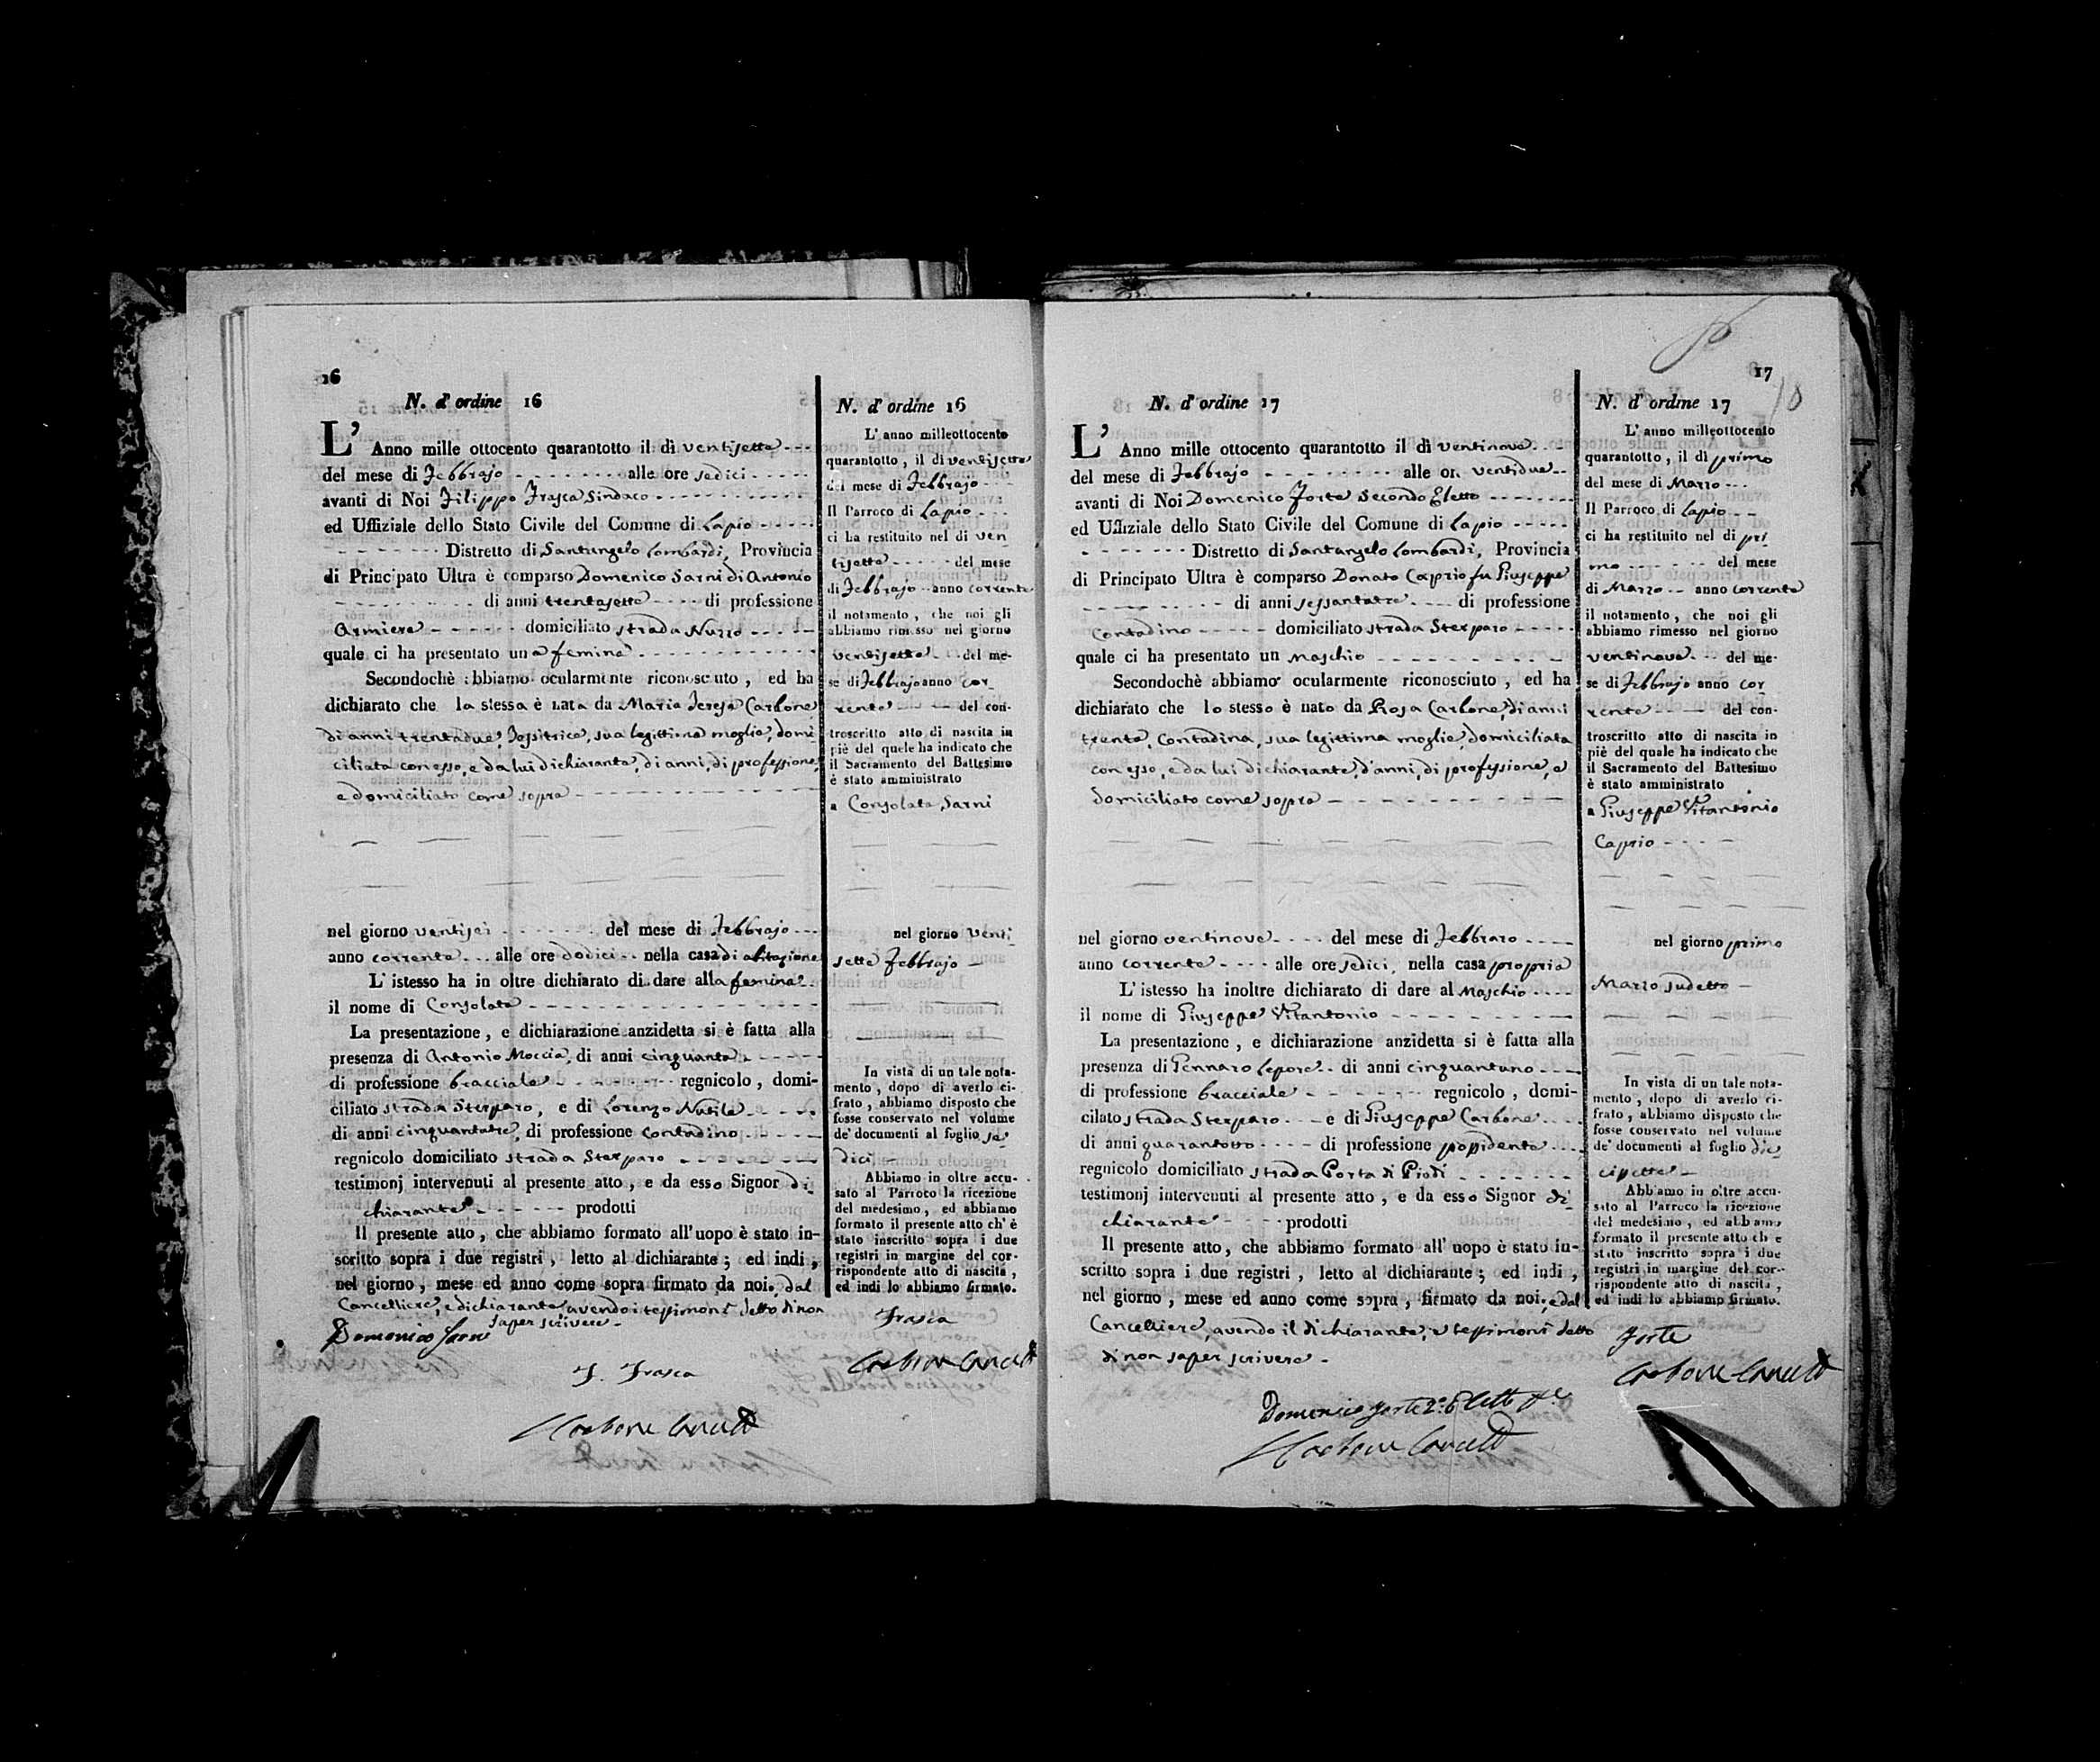 16
N. d' ordine 16
L' Anno mille ottocento quarantotto il dì ventisette
del mese di Febbrajo alle ore sedici
avanti di Noi Filippo Frasca Sindaco
ed Uffiziale dello Stato Civile del Comune di Lapio
Distretto di Santangelo Lombardi, Provincia
di Principato Ultra è comparso Domenico Sarni di Antonio
di anni trentasette di professione
Armiere domiciliato strada Nuzzo
quale ci ha presentato una femina
Secondochè abbiamo ocularmente riconosciuto, ed ha
dichiarato che la stessa è nata da Maria Teresa Carbone
di anni trentadue, , sua legittima moglie, domi-
ciliata con esso, e da lui dichiarante, di anni, di professione,
e domiciliato come sopra
nel giorno ventisei del mese di Febbrajo
anno corrente alle ore dodici nella casa di abitazione
L' istesso ha in oltre dichiarato di dare alla femina
il nome di Consolata
La presentazione, e dichiarazione anzidetta si è fatta alla
presenza di Antonio Moccia, di anni cinquanta
di professione bracciale regnicolo, domi-
ciliato strada Sterparo, e di Lorenzo Nutile
di anni cinquantatre, di professione contadino
regnicolo domiciliato strada Sterparo
testimonj intervenuti al presente atto, e da esso Signor di-
chiarante prodotti
Il presente atto, che abbiamo formato all'uopo è stato in-
scritto sopra i due registri, letto al dichiarante; ed indi,
nel giorno, mese ed anno come sopra firmato da noi, dal
Cancelliere, e dichiarante avendo i testimoni detto di non
saper scrivere.
Domenico Sarni
F. Frasca
Carbone Canc
N. d' ordine 16
L' anno milleottocento
quarantotto, il dì ventisette
del mese di Febbrajo
Il Parroco di Lapio
ci ha restituito nel dì ven
tisette del mese
di Febbrajo anno corrente
il notamento, che noi gli
abbiamo rimesso nel giorno
ventisette del me-
se di Febbrajo anno cor-
rente del con-
troscritto atto di nascita in
piè del quele ha indicato che
il Sacramento del Battesimo
è stato amministrato
a Consolata Sarni
nel giorno venti-
sette Febbrajo
In vista di un tale nota-
mento, dopo di averlo ci-
frato, abbiamo disposto che
fosse conservato nel volume
de' documenti al foglio se
dici
Abbiamo in oltre accu-
sato al Parroco la ricezione
del medesimo, ed abbiamo
formato il presente atto ch' è
stato inscritto sopra i due
registri in margine del cor-
rispondente atto di nascita,
ed indi lo abbiamo firmato.
Frasca
Carbone Canc
17
10
N. d' ordine 17
L' Anno mille ottocento quarantotto il dì ventinove
del mese di Febbrajo alle or. ventidue
avanti di Noi Domenico Forte Secondo Eletto
ed Uffiziale dello Stato Civile del Comune di Lapio
Distretto di Santangelo Lombardi, Provincia
di Principato Ultra è comparso Donato Caprio fu Giuseppe
di anni sessantatre di professione
Contadino domiciliato strada Sterparo
quale ci ha presentato un Maschio
Secondochè abbiamo ocularmente riconosciuto, ed ha
dichiarato che lo stesso è nato da Rosa Carbone, di anni
trenta, Contadina, sua legittima moglie, domiciliata
con esso, e da lui dichiarante, d'anni, di professione, e
domiciliato come sopra
nel giorno ventinove del mese di Febbraro
anno corrente alle ore sedici, nella casa propria
L' istesso ha inoltre dichiarato di dare al Maschio
il nome di Giuseppe Vitantonio
La presentazione, e dichiarazione anzidetta si è fatta alla
presenza di Gennaro Lepore di anni cinquantuno
di professione bracciale regnicolo, domi-
cilato strada Sterparo e di Giuseppe Carbone
di anni quarantotto di professione possidente
regnicolo domiciliato strada Porta di Piedi
testimonj intervenuti al presente atto, e da esso Signor di-
chiarante prodotti
Il presente atto, che abbiamo formato all' uopo è stato in-
scritto sopra i due registri, letto al dichiarante; ed indi,
nel giorno, mese ed anno come sopra, firmato da noi, e dal
Cancelliere, avendo il dichiarante, e testimoni detto
di non saper scrivere.
Domenico Forte 2º Eletto
Carbone Canc
N. d' ordine 17
L' anno milleottocento
quarantotto, il dì primo
del mese di Marzo
Il Parroco di Lapio
ci ha restituito nel dì pri-
mo del mese
di Marzo anno corrente
il notamento, che noi gli
abbiamo rimesso nel giorno
ventinove del me-
se di Febbrajo anno cor-
rente del con-
troscritto atto di nascita in
piè del quale ha indicato che
il Sacramento del Battesimo
è stato amministrato
a Giuseppe Vitantonio
Caprio
nel giorno primo
Marzo sudetto
In vista di un tale nota-
mento, dopo di averlo ci-
frato, abbiamo disposto che
fosse conservato nel volume
de' documenti al foglio die
cisette
Abbiamo in oltre accu-
sato al Parroco la ricezione
del medesimo, ed abbiamo
formato il presente atto ch' è
stato inscritto sopra i due
registri in margine del cor-
rispondente atto di nascita,
ed indi lo abbiamo firmato.
Forte
Carbone Canc